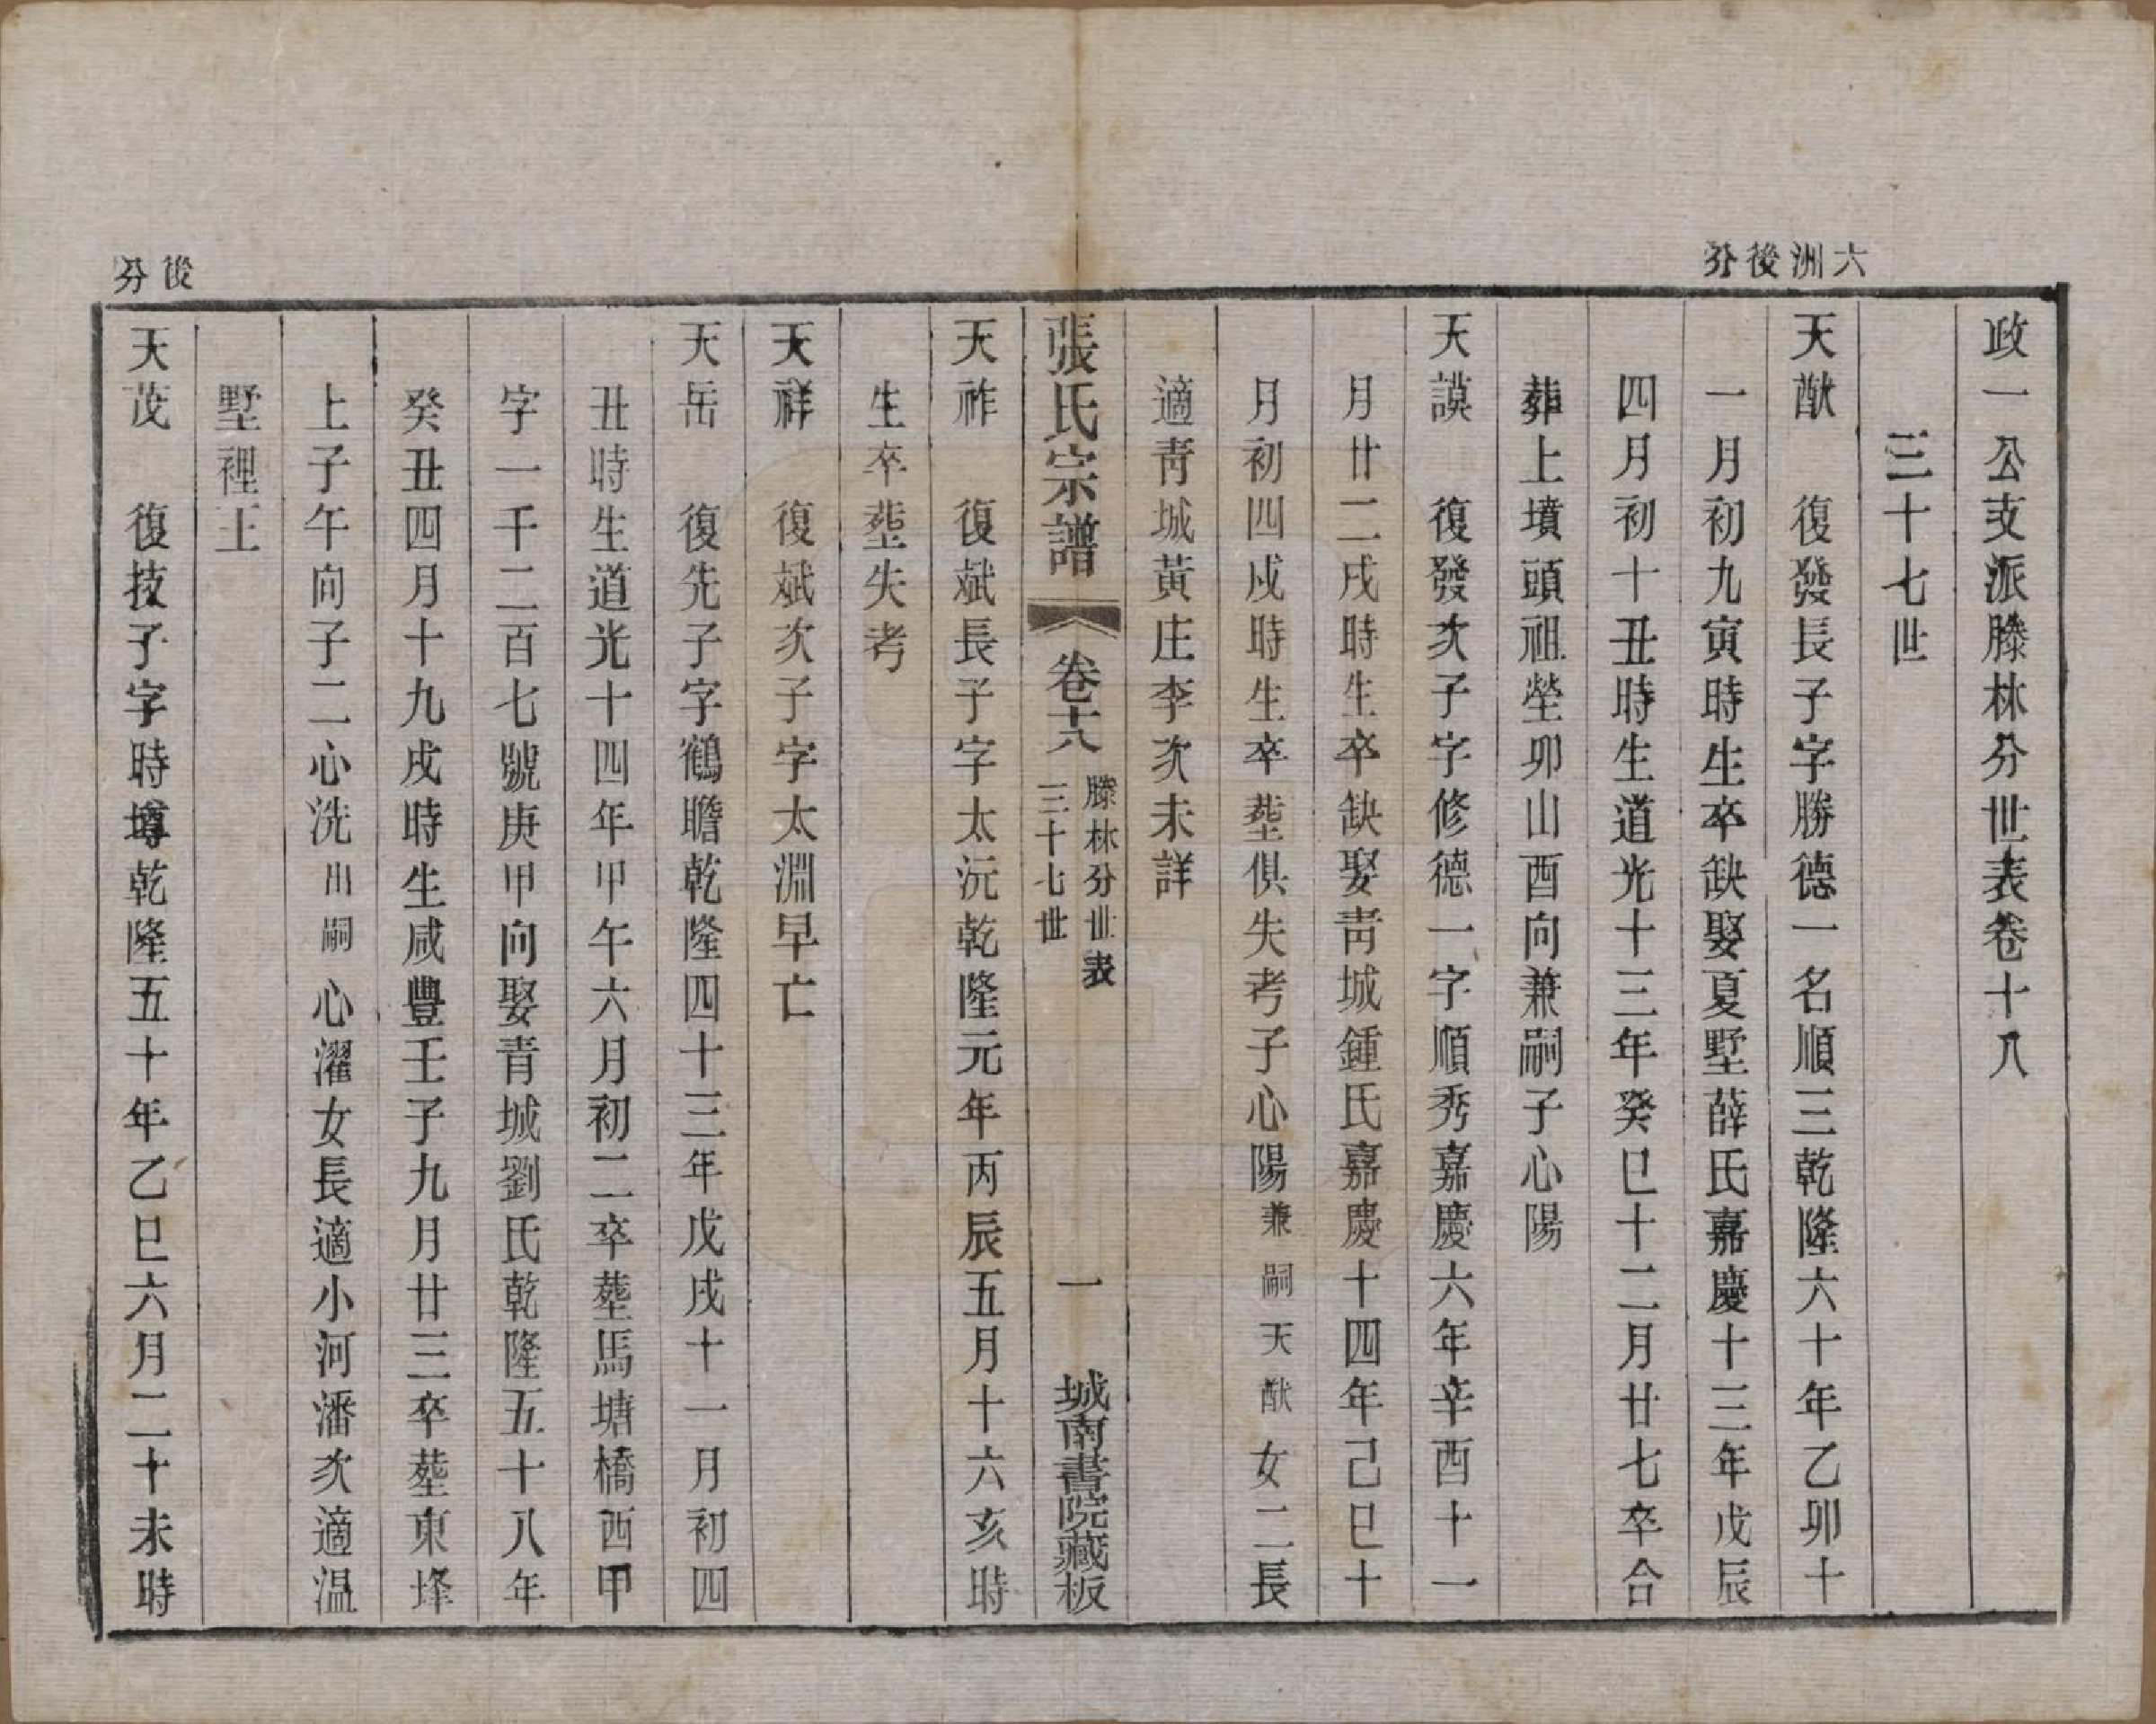 六洲後分
政一公支派滕林分世表卷十八
三十七世
天猷　復發長子字勝德一名順三乾隆六十年乙卯十
一月初九寅時生卒缺娶夏墅薛氏嘉慶十三年戊辰
四月初十丑時生道光十三年癸巳十二月廿七卒合
葬上墳頭祖塋卯山酉向兼嗣子心陽
天謨　復發次子字修德一字順秀嘉慶六年辛酉十一
月廿二戌時生卒缺娶青城鍾氏嘉慶十四年己巳十
月初四戌時生卒塟俱失考子心陽兼嗣天猷女二長
適青城黃庄李次未詳
張氏宗譜　卷十八　滕林分世表　三十七世　一　城南書院藏板
天祚　復斌長子字太沅乾隆元年丙辰五月十六亥時
生卒塟失考
天祥　復斌次子字太淵早亡
天岳　復先子字鶴瞻乾隆四十三年戊戌十一月初四
丑時生道光十四年甲午六月初二卒塟馬塘橋西甲
字一千二百七號庚甲向娶青城劉氏乾隆五十八年
癸丑四月十九戌時生咸豐壬子九月廿三卒塟東垾
上子午向子二心洗出嗣心濯女長適小河潘次適溫
墅裡王
後分
天茂　復技子字時墫乾隆五十年乙巳六月二十未時